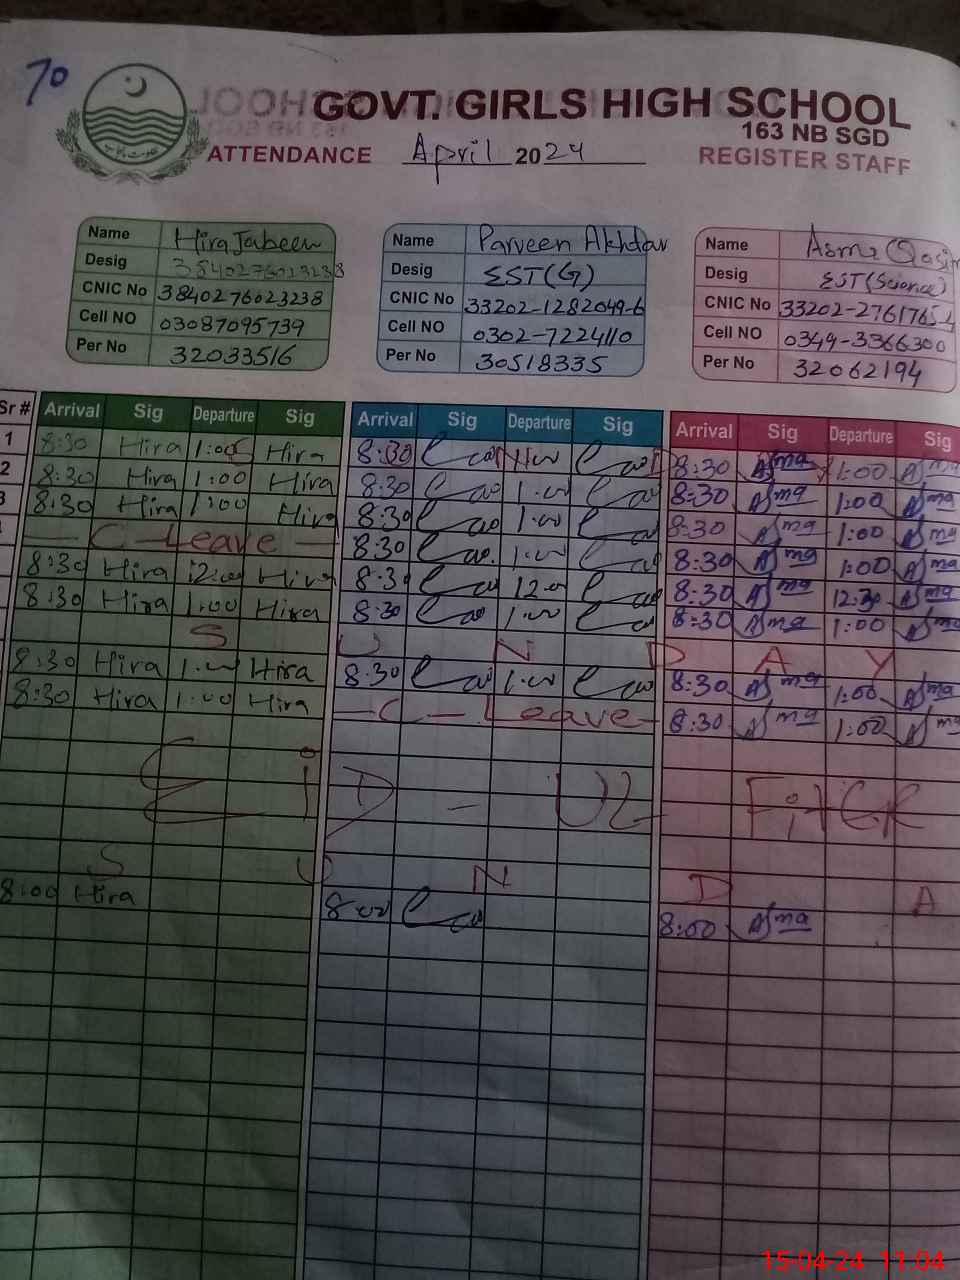 70
GOVT. GIRLS HIGH SCHOOL
163 NB SGD
ATTENDANCE April 2024 REGISTER STAFF
Name Hira Jabeen
Desig 3840276023238
CNIC No 3840276023238
Cell NO 03087095739
Per No 32033516
Name Parveen Akhdar
Desig EST(G)
CNIC No 33202-1282049-6
Cell NO 0302-7224110
Per No 30518335
Name Asma Qasim
Desig EST(Science)
CNIC No 33202-2761765-4
Cell NO 0349-3366300
Per No 32062194
Sr # Arrival Sig Departure Sig Arrival Sig Departure Sig Arrival Sig Departure Sig
1 8:30 Hira 1:00 Hira 8:30 1:00 8:30 Asma 1:00 Asma
2 8:30 Hira 1:00 Hira 8:30 1:00 8:30 Asma 1:00 Asma
3 8:30 Hira 1:00 Hira 8:30 1:00 8:30 Asma 1:00 Asma
- C - Leave - 8:30 1:00 8:30 Asma 1:00 Asma
8:30 Hira 12:00 Hira 8:30 12:00 8:30 Asma 12:30 Asma
8:30 Hira 1:00 Hira 8:30 1:00 8:30 Asma 1:00 Asma
S U N D A Y
8:30 Hira 1:00 Hira 8:30 1:00 8:30 Asma 1:00 Asma
8:30 Hira 1:00 Hira - C - Leave - 8:30 Asma 1:00 Asma
EiD - UL FitER
S U N D A
8:00 Hira 8:00 8:00 Asma
15-04-24 11:04